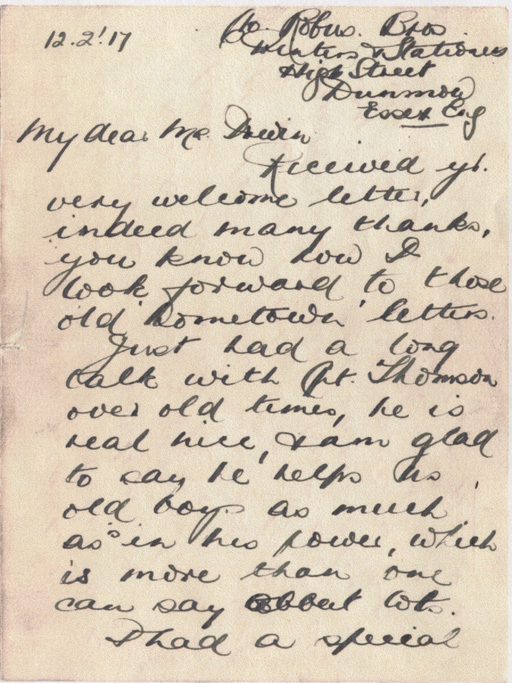 12.2.'17
c/o Robus. Bros
Printers & Stationers
High Street
Dunmow
Essex Eng
My dear Mr.
Received yr.
very welcome letter,
indeed many thanks,
you know how I
look forward to those
old 'hometown' letters.
Just had a long
talk with Cpt. Thomson
over old times, he is
real nice, & am glad
to say he helps us,
old boys as much
as in his power, which
is more than one
can say about lots.
I had a special